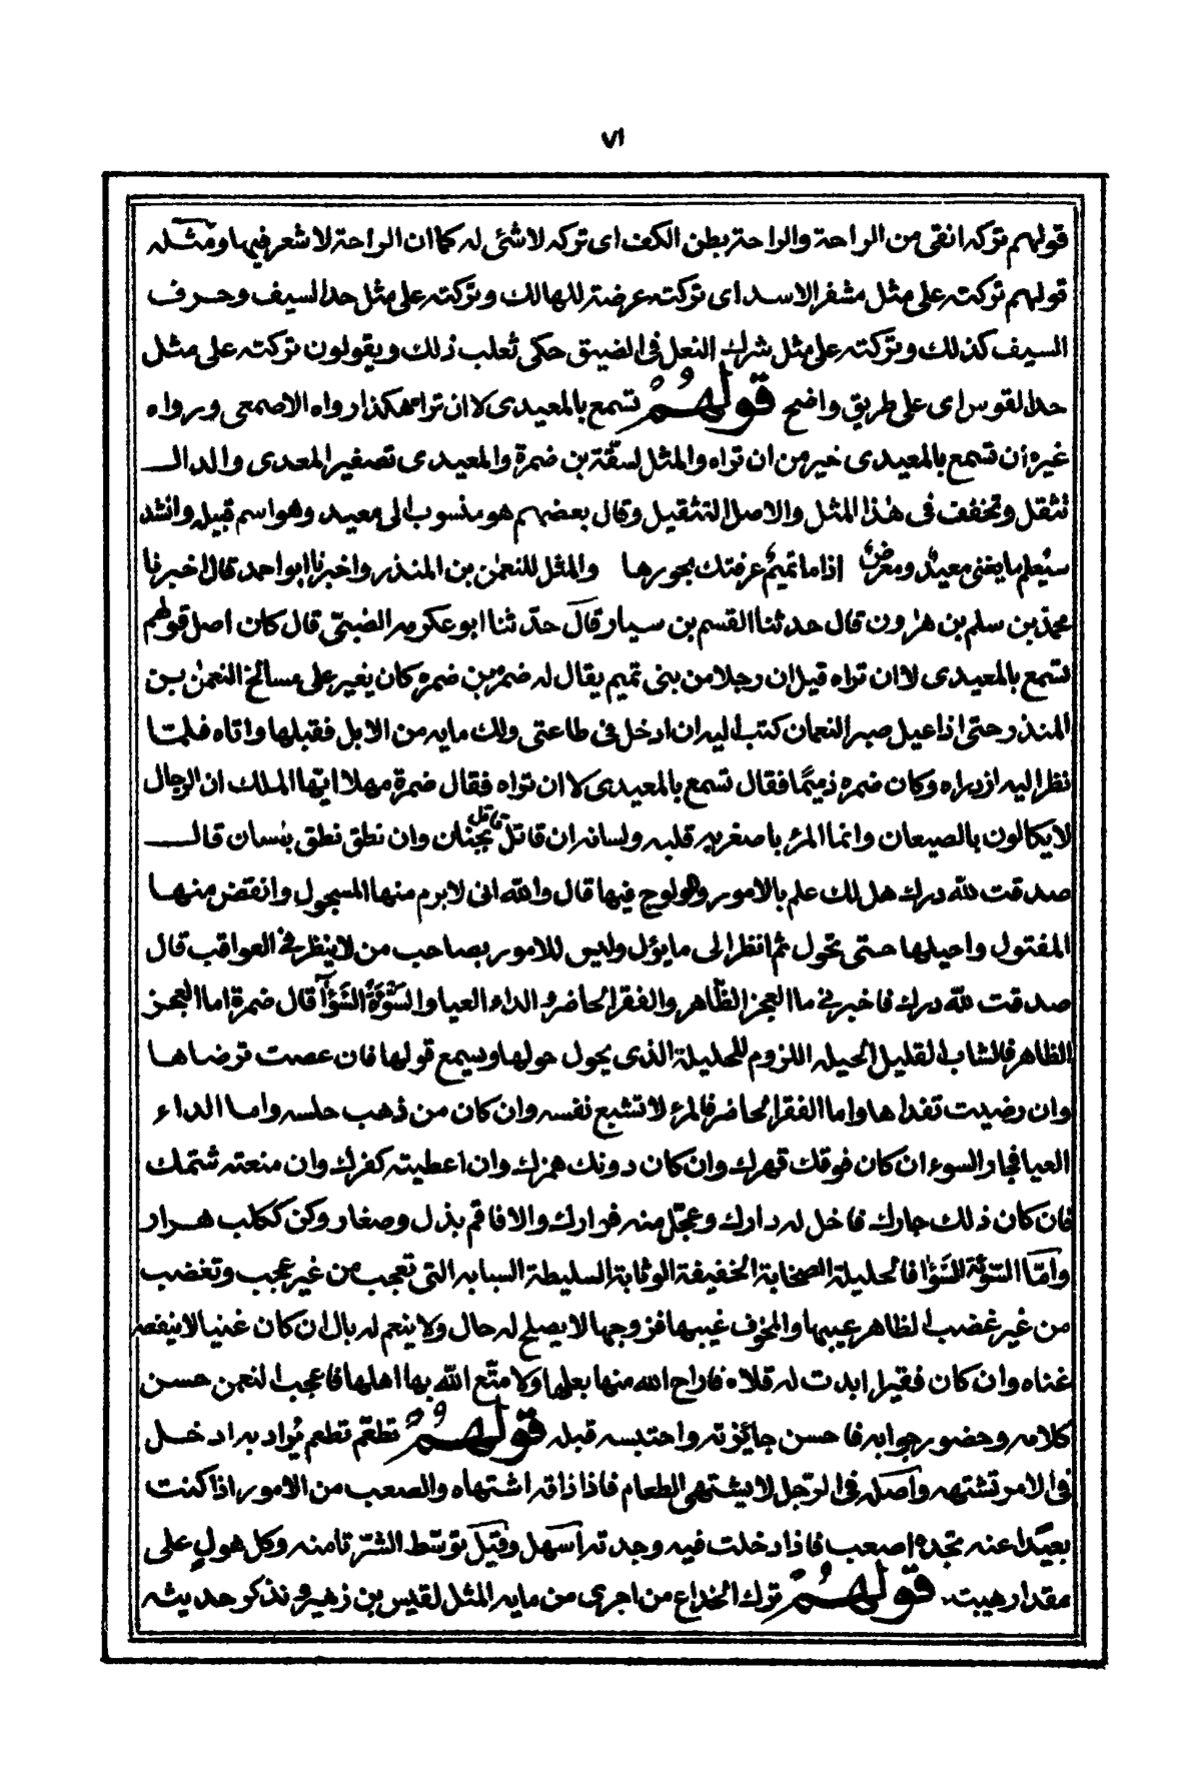 ٧١
قولهم تركه انقى من الراحة والراحة بطن الكف اى تركه لا شئ له كما ان الراحة لا شعر فيها ومثله
قولهم تركته على مثل مشفر الاسد اى تركته عرضة للهالك وتركته على مثل حد السيف وحرف
السيف كذلك وتركته على مثل شراك النعل فى الضيق حكى ثعلب ذلك ويقولون تركته على مثل
حد القوس اى على طريق واضح قولهُمْ تسمع بالمعيدى لا ان تراه هكذا رواه الاصمعى ورواه
غيره أن تسمع بالمعيدى خير من ان تراه والمثل لسقّة بن ضمرة والمعيدى تصغير المعدى والدال
تثقل وتخفف فى هذا المثل والاصل التثقيل وقال بعضهم هو منسوب الى معيد وهو اسم قبيله وانشد
سيُعلم ما يغنى معيدٌ ومعرضٌ اذا ما تميمٌ غرقتك بحورها والمثل للنعمٰن بن المنذر واخبرنا ابو احمد قال اخبرنا
محمد بن سلم بن هٰرون قال حدثنا القسم بن سيار قال حدّثنا ابو عكرمه الضبىّ قال كان اصل قولهم
تسمع بالمعيدى لا ان تراه قيل ان رجلا من بنى تميم يقال له ضمرة بن ضمره كان يغير على مسالح النعمٰن بن
المنذر حتى اذا عيل صبر النعمان كتب اليه ان ادخل فى طاعتى ولك مايه من الابل فقبلها واتاه فلمّا
نظر اليه ازدراه وكان ضمره ذميمًا فقال تسمع بالمعيدى لا ان تراه فقال ضمرة مهلا ايّها الملك ان الرجال
لا يكالون بالصيعان وانما المرء باصغريه قلبه ولسانه ان قاتل قاتل بجنان وان نطق نطق بلسان قال
صدقت لله درك هل لك علم بالامور والولوج فيها قال والله انى لابرم منها المسحول وانقض منها
المفتول واحيلها حتى تحول ثم انظر الى ما يؤل وليس للامور بصاحب من لا ينظر فى العواقب قال
صدقت لله درك فاخبرنى ما العجز الظّاهر والفقر الحاضر والداء العيا والسَّوْءَةُ السَّوْآ قال ضمرة اما العجز
الظاهر فالشاب القليل الحيله اللزوم للحليلة الذى يحول حولها ويسمع قولها فان غضبت ترضاها
وان رضيت تفداها واما الفقر الحاضر فالمرء لا تشبع نفسه وان كان من ذهب حلسه واما الداء
العيا فجار السوء ان كان فوقك قهرك وان كان دونك همزك وان اعطيته كفرك وان منعته شتمك
فان كان ذلك جارك فاخل له دارك وعجّل منه فرارك والا فاقم بذل وصغار وكن ككلب هرار
وامّا السّوْءَة السَّوْا فالحليلة الصخابة الخفيفة الوثابة السليطة السبابه التى تعجب من غير عجب وتغضب
من غير غضب الظاهر عيبها والمخوف غيبها فزوجها لا يصلح له حال ولا ينعم له بال ان كان غنيا لا ينفعه
غناه وان كان فقيرا ابدت له قلاه فاراح الله منها بعلها ولا متّع الله بها اهلها فاعجب النعمن حسن
كلامه وحضور جوابه فاحسن جائزته واحتبسه قبله قولهُمْ تطعّم تطعم يُراد به ادخل
فى الامر تشتهه واصله فى الرّجل لا يشتهى الطعام فاذا ذاقه اشتهاه والصعب من الامور اذا كنت
بعيدًا عنه تجده اصعب فاذا دخلت فيه وجدته اسهل وقيل توسّط الشرّ تامنه وكل هولٍ على
مقدار هيبته قولهُمْ ترك الخداع من اجرى من مايه المثل لقيس بن زهير ونذكر حديثه